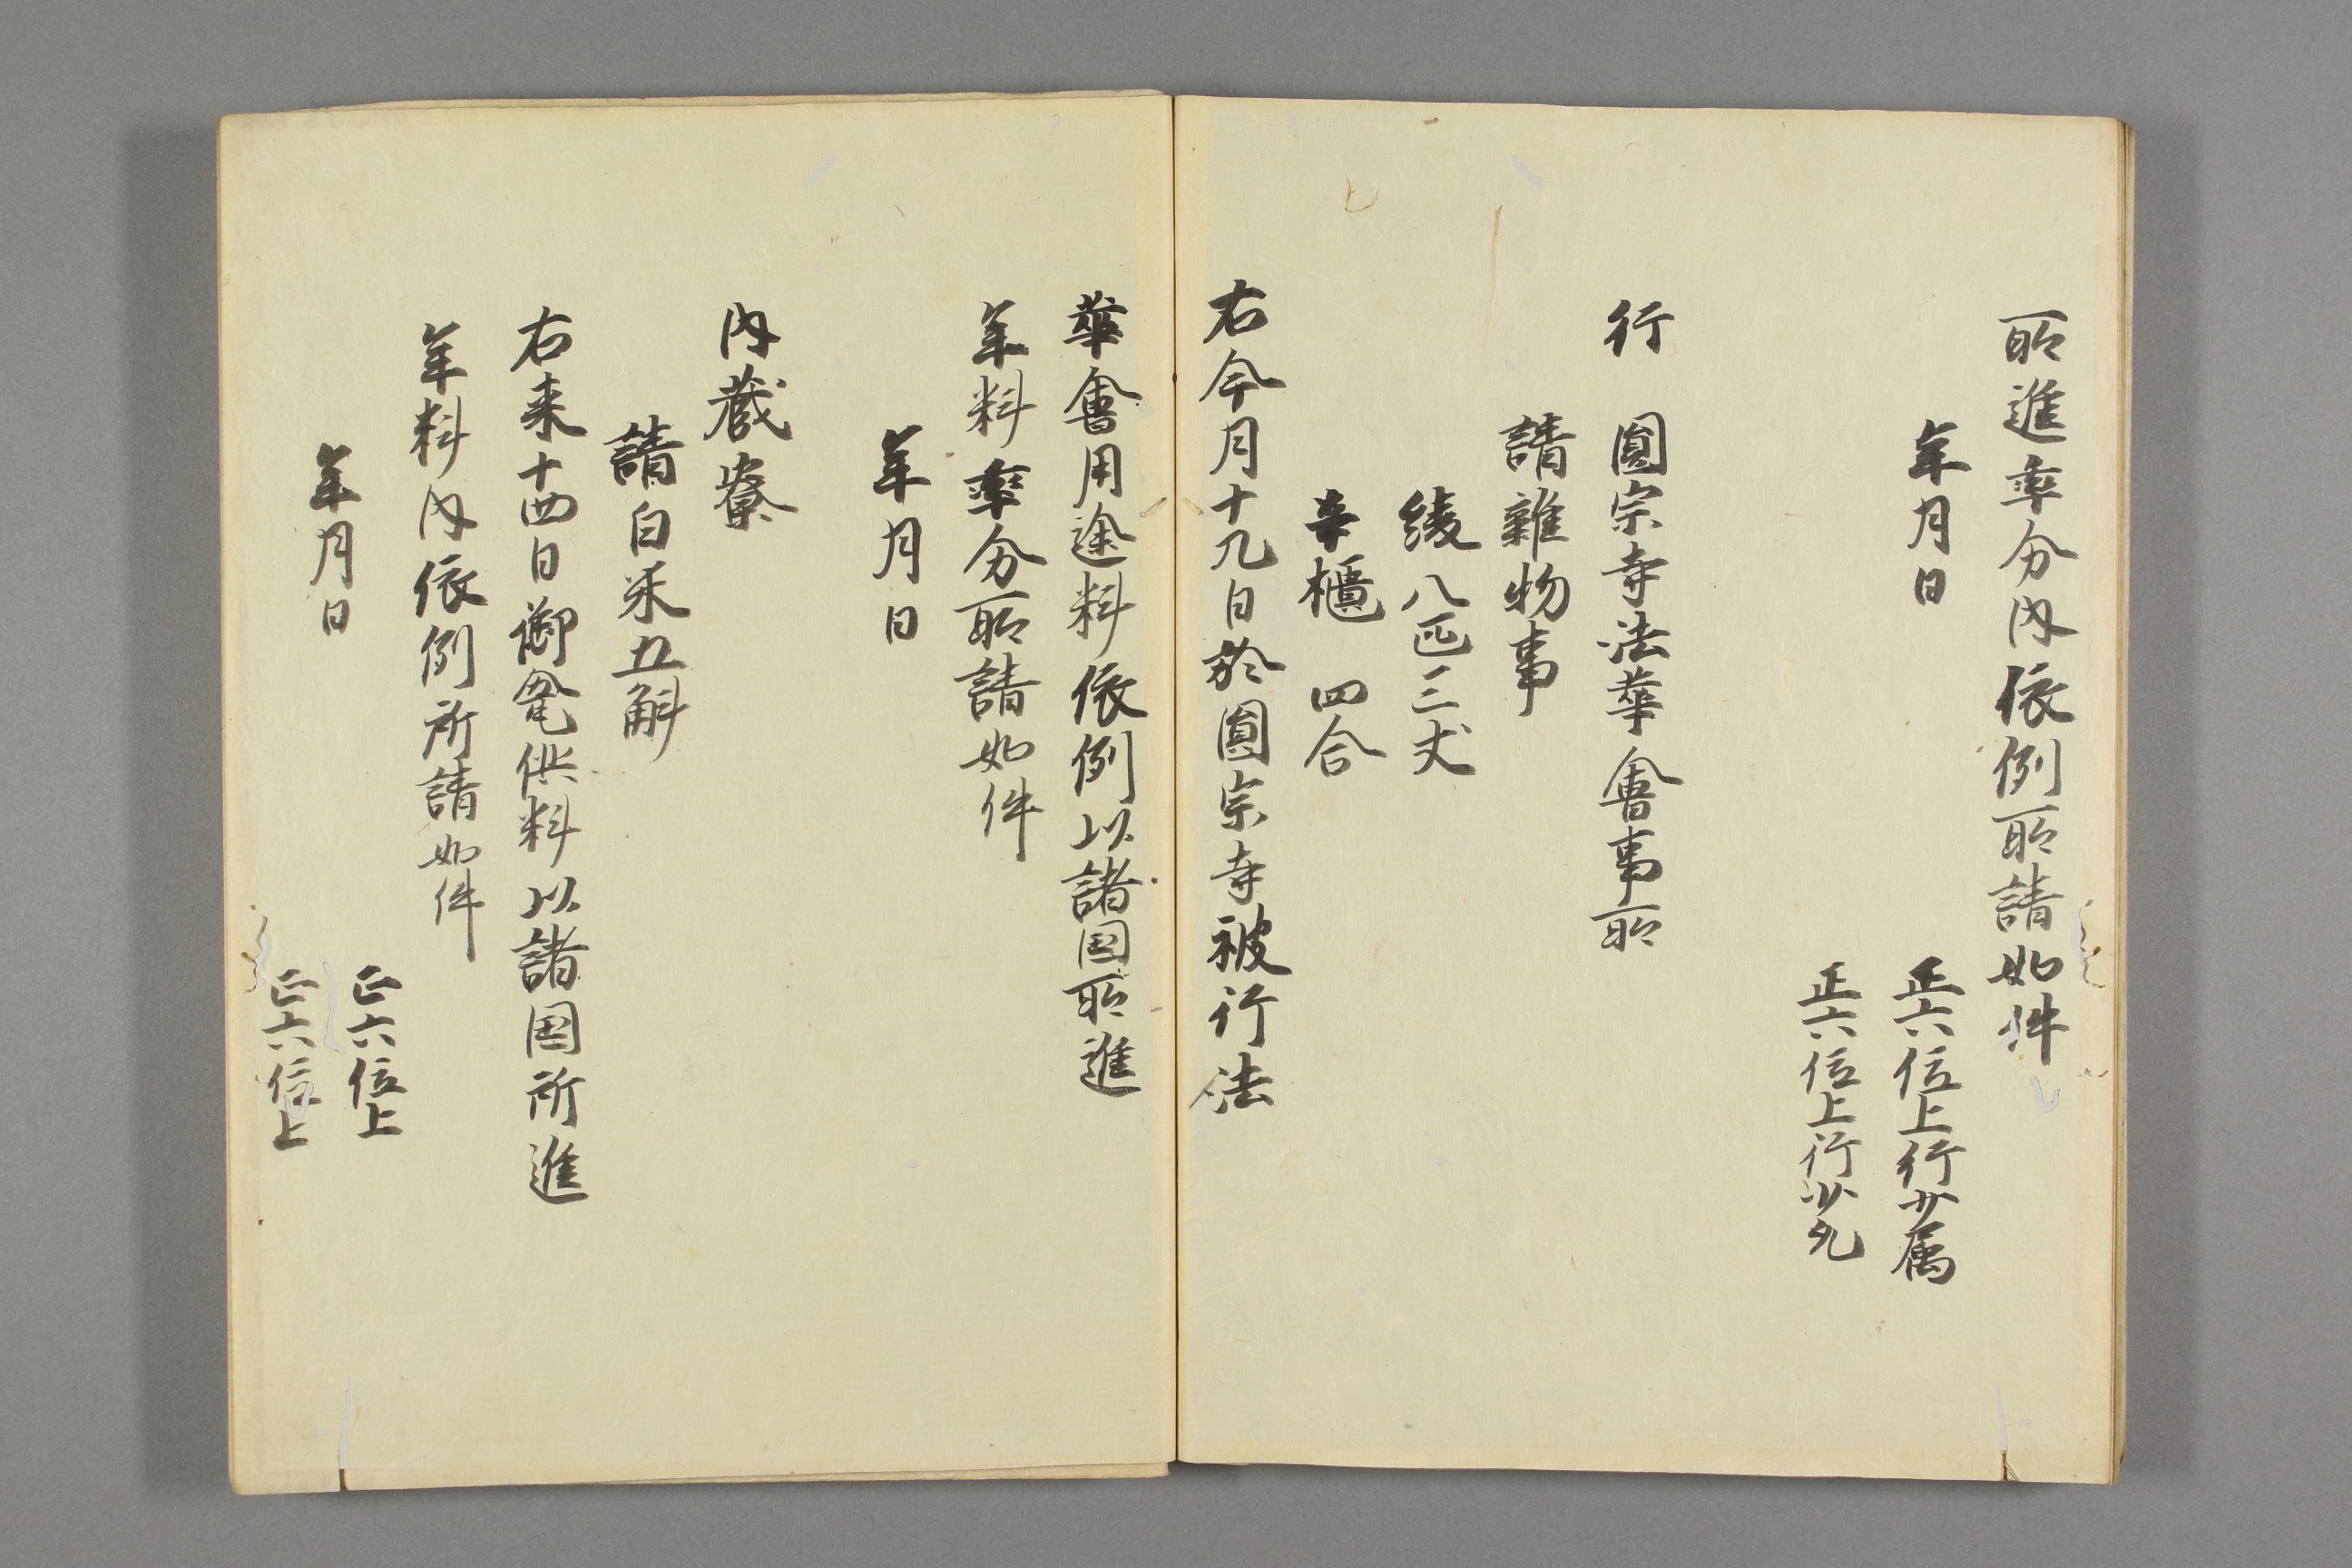 所進率分内依例所請如件
年月日
正六位上行少属
正六位上行少允
行圓宗寺法華會事所
請雜物事
綾八疋三丈
辛櫃四合
右今月十九日於圓宗寺被行法
華會用途料依例以諸国所進
年料率分所請如件
年月日
内蔵寮
請白米五斛
右来十四日御竃供料以諸国所進
年料内依例所請如件
年月日
正六位上
正六位上